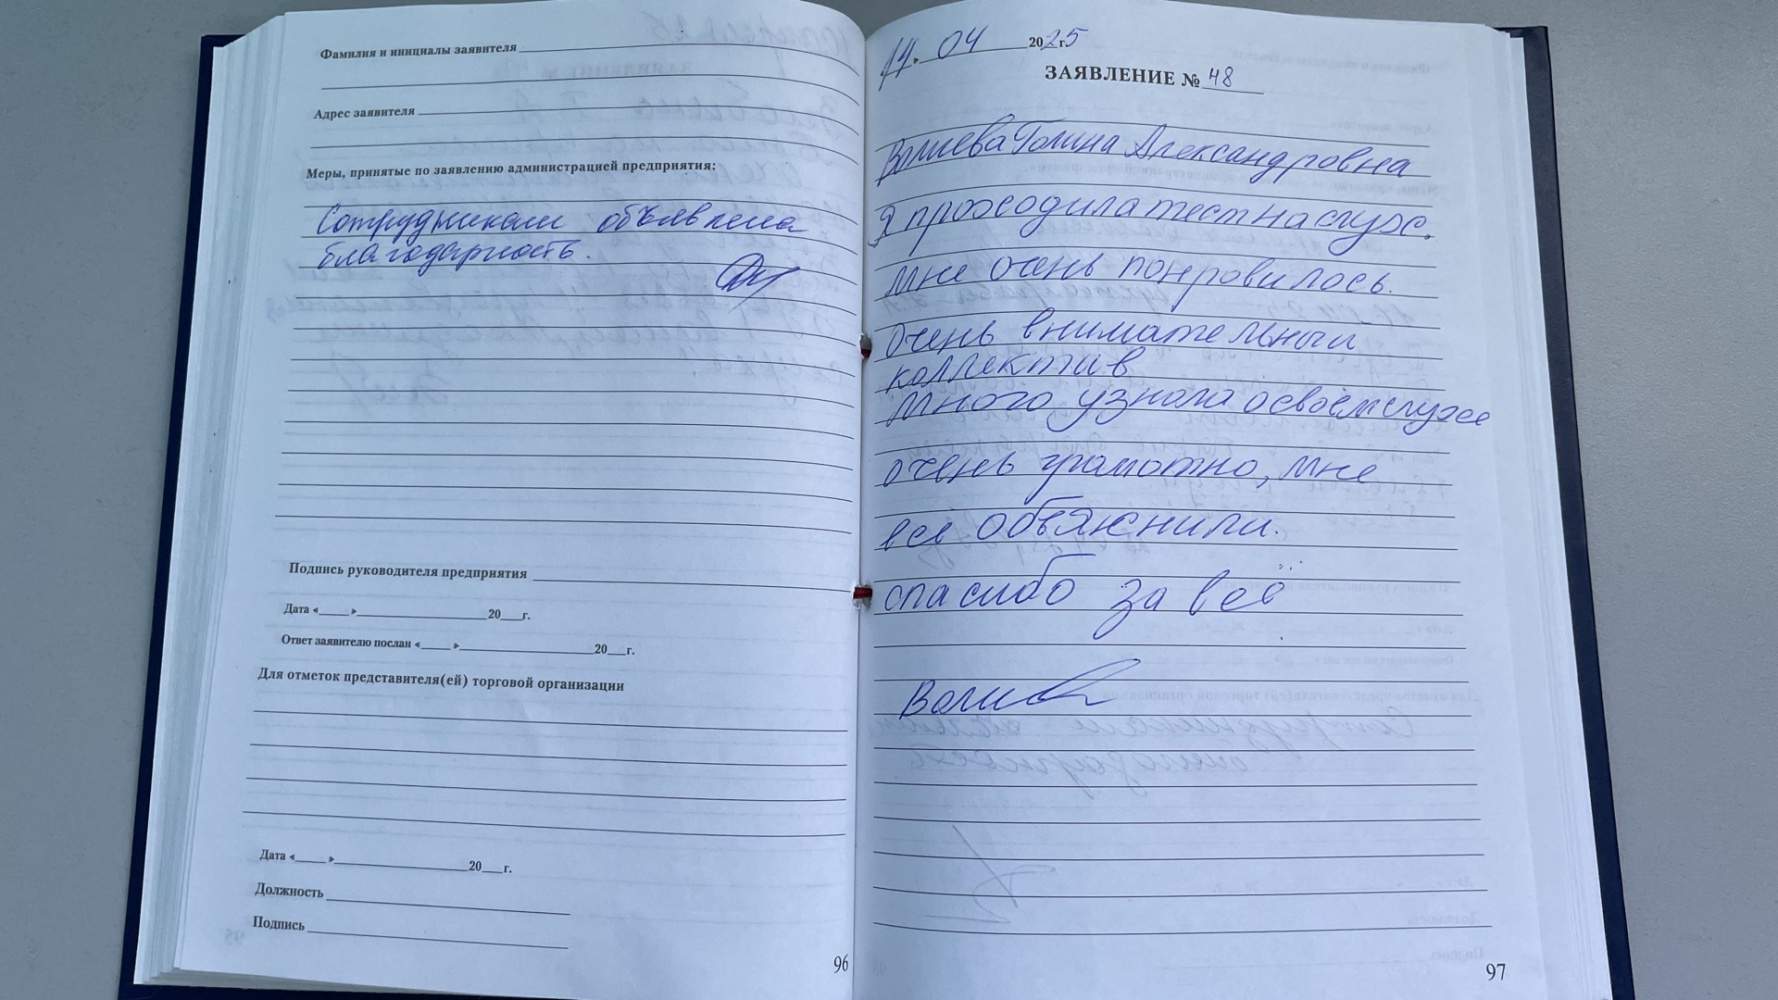 Фамилия и инициалы заявителя
Адрес заявителя
Меры, принятые по заявлению администрацией предприятия:
Сотрудникам объявлена
благодарность.
Подпись руководителя предприятия
Дата «____» ____ 20__г.
Ответ заявителю послан «____» ____ 20__г.
Для отметок представителя(ей) торговой организации
Дата «____» ____ 20__г.
Должность
Подпись
96
14. 04 2025 г.
ЗАЯВЛЕНИЕ № 48
Волиева Голина Александровна
Я проходила тест на слухс.
мне очень понровилось.
очень внимательный
коллектив
много узнола о своём слухе
очень грамотно, мне
всё объяснили.
спасибо за всё
97